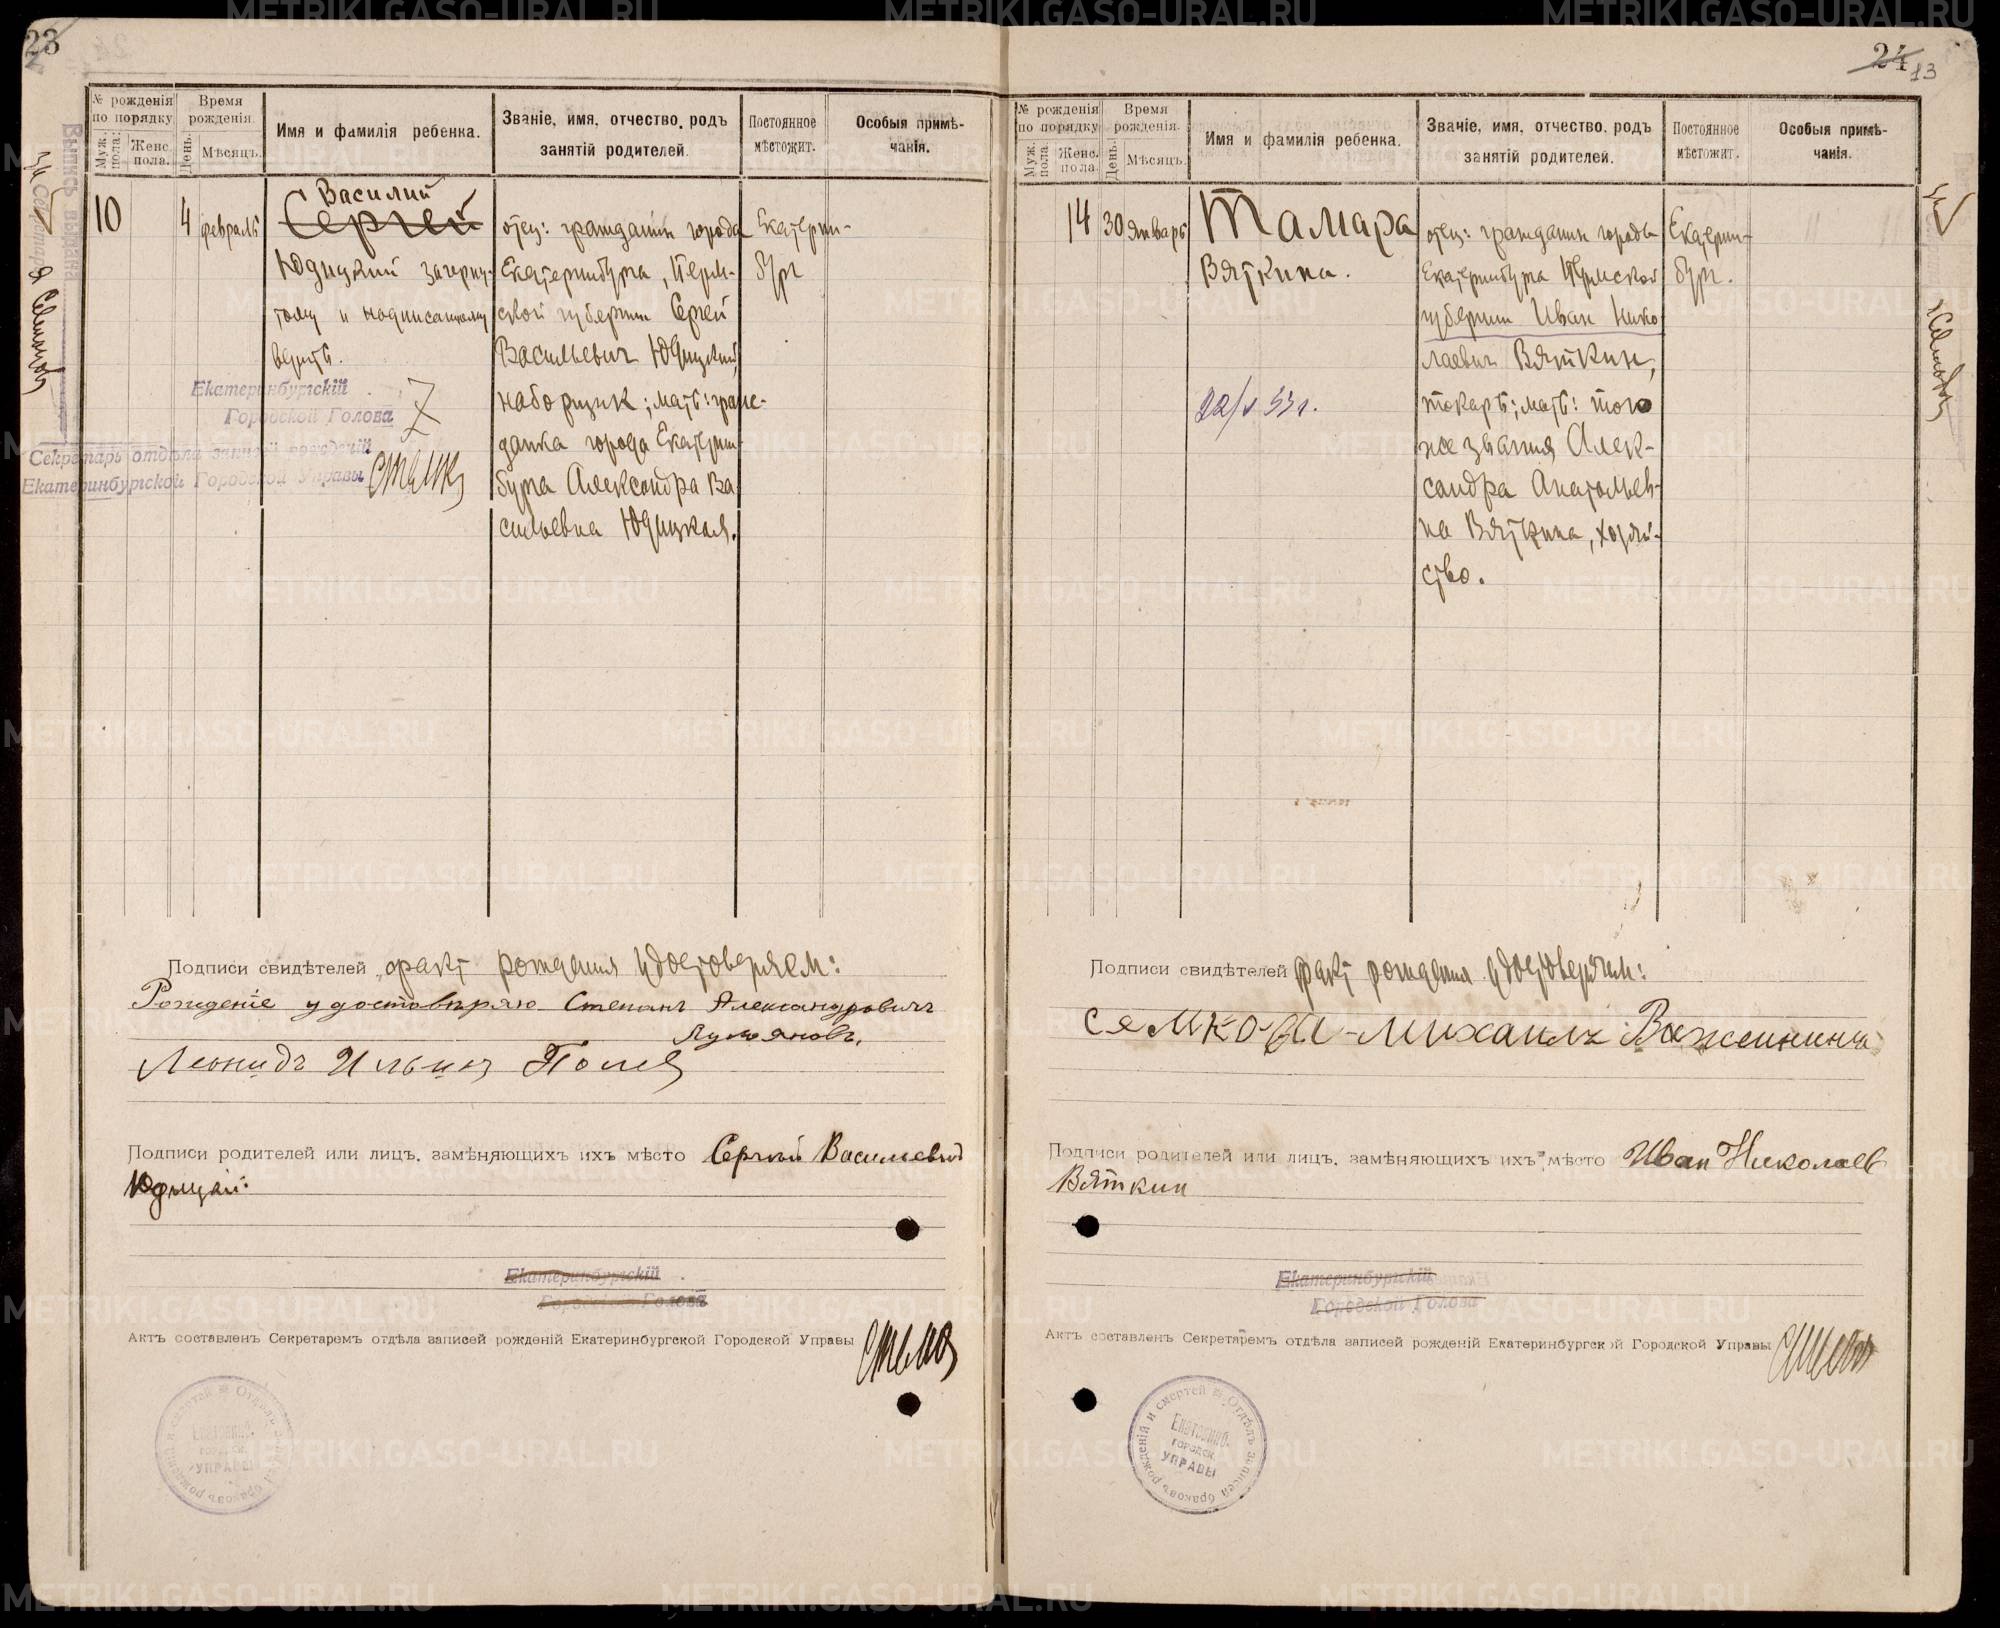 23
№ рожденія по порядку
Муж. пола.
Женс. пола.
Время рожденія.
День.
Мѣсяцъ.
Имя и фамилія ребенка.
Званіе, имя, отчество, родъ
занятій родителей.
Постоянное
мѣстожит.
Особыя примѣ-
чанія.
10
4
февраль
Василий
Сергей
Юдицкий зачерну-
тому и надписанному
верить.
Екатеринбургскій
Городской Голова
Секретарь отдѣла записей рожденій
Екатеринбургской Городской Управы
отец: гражданин города
Екатеринбурга, Перм-
ской губернии Сергей
Васильевич Юдицкий,
наборщик; мать: граж-
данка города Екатерин-
бурга Александра Ва-
сильевна Юдицкая.
Екатерин-
бург
Выпись выдана
Подписи свидѣтелей факт рождения удостоверяем:
Рождение удостовѣряю Степанъ Александровичъ
Лукояновъ.
Леонидъ Ильинъ
Подписи родителей или лицъ, замѣняющихъ ихъ мѣсто Сергей Васильевич
Юдицкий
Екатеринбургскій
Городской Голова
Актъ составленъ Секретаремъ отдѣла записей рожденій Екатеринбургской Городской Управы
Отдѣлъ записей браковъ рожденій и смертей
Екатеринб.
городск.
УПРАВЫ
24
13
№ рожденія по порядку
Муж. пола.
Женс. пола.
Время рожденія.
День.
Мѣсяцъ.
Имя и фамилія ребенка.
Званіе, имя, отчество, родъ
занятій родителей.
Постоянное
мѣстожит.
Особыя примѣ-
чанія.
14
30
январь
Тамара
Вяткина.
отец: гражданин города
Екатеринбурга Пермской
губернии Иван Нико
лаевич Вяткин,
токарь; мать: того
же звания Алек-
сандра Анатольев-
на Вяткина, хозяй-
ство.
Екатерин-
бург.
Подписи свидѣтелей факт рождения удостоверяем:
Михаилъ Важенинъ
Подписи родителей или лицъ, замѣняющихъ ихъ мѣсто Иван Николаев
Вяткин
Екатеринбургскій
Городской Голова
Актъ составленъ Секретаремъ отдѣла записей рожденій Екатеринбургской Городской Управы
Отдѣлъ записей браковъ рожденій и смертей
Екатеринб.
городск.
УПРАВЫ
METRIKI.GASO-URAL.RU